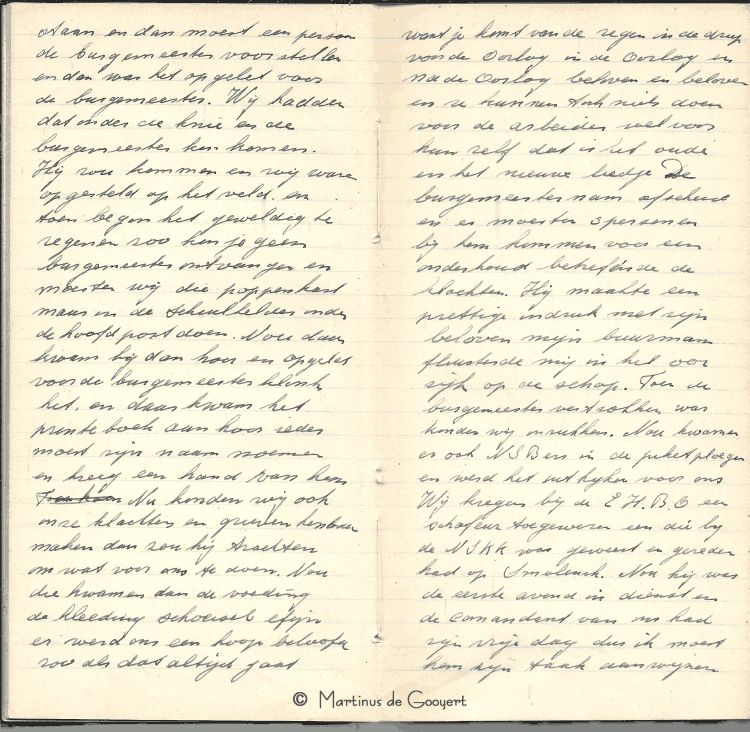 staan en dan moest een persoon
de burgemeester voorstellen
en dan was het opgelet voor
de burgemeester. Wij hadden
dat onder de knie en de
burgemeester kon komen.
Hij zou kommen en wij ware
opgesteld op het veld. en
toen begon het geweldig te
regenen zoo kon je geen
burgemeester ontvangen en
moesten wij die poppenkast
maar in de schuilkelder onder
de hoofd post doen. Nou daar
kwam hij dan hoor en opgelet
voor de burgemeester klonk
het. en daar kwam het
prente boek aan hoor ieder
moest zijn naam noemen
en kreeg een hand van hem
Nu konden wij ook
onze klachten en grieven kenbaar
maken dan zou hij trachten
om wat voor ons te doen. Nou
die kwamen dan de voeding
de kleeding schoeisel efijn
er werd ons een hoop beloofd
zoo als dat altijd gaat
want je komt van de regen in de drup
van de Oorlog in de Oorlog en
na de Oorlog beloven en beloven
en ze kunnen toch niets doen
voor de arbeider wel voor
hun zelf dat is het oude
en het nieuwe liedje De
burgemeester nam afscheid
en er moesten 3 personen
bij hem kommen voor een
onderhoud betrefende de
klachten. Hij maakte een
prettige indruk met zijn
beloven mijn buurman
fluisterde mij in het oor
kijk op de schop. Toen de
burgemeester vertrokken was
konden wij inrukken. Nou kwamen
er ook NSBers in de piketploegen
en werd het uitkijken voor ons
Wij kregen bij de E.H.B.O een
schofeur toegewezen een die bij
de NSKK was geweest en gereden
had op Smolensk. Nou hij was
de eerste avond in dienst en
de comandant van ons had
zijn vrije dag dus ik moest
hem zijn taak aanwijzen
© Martinus de Gooyert